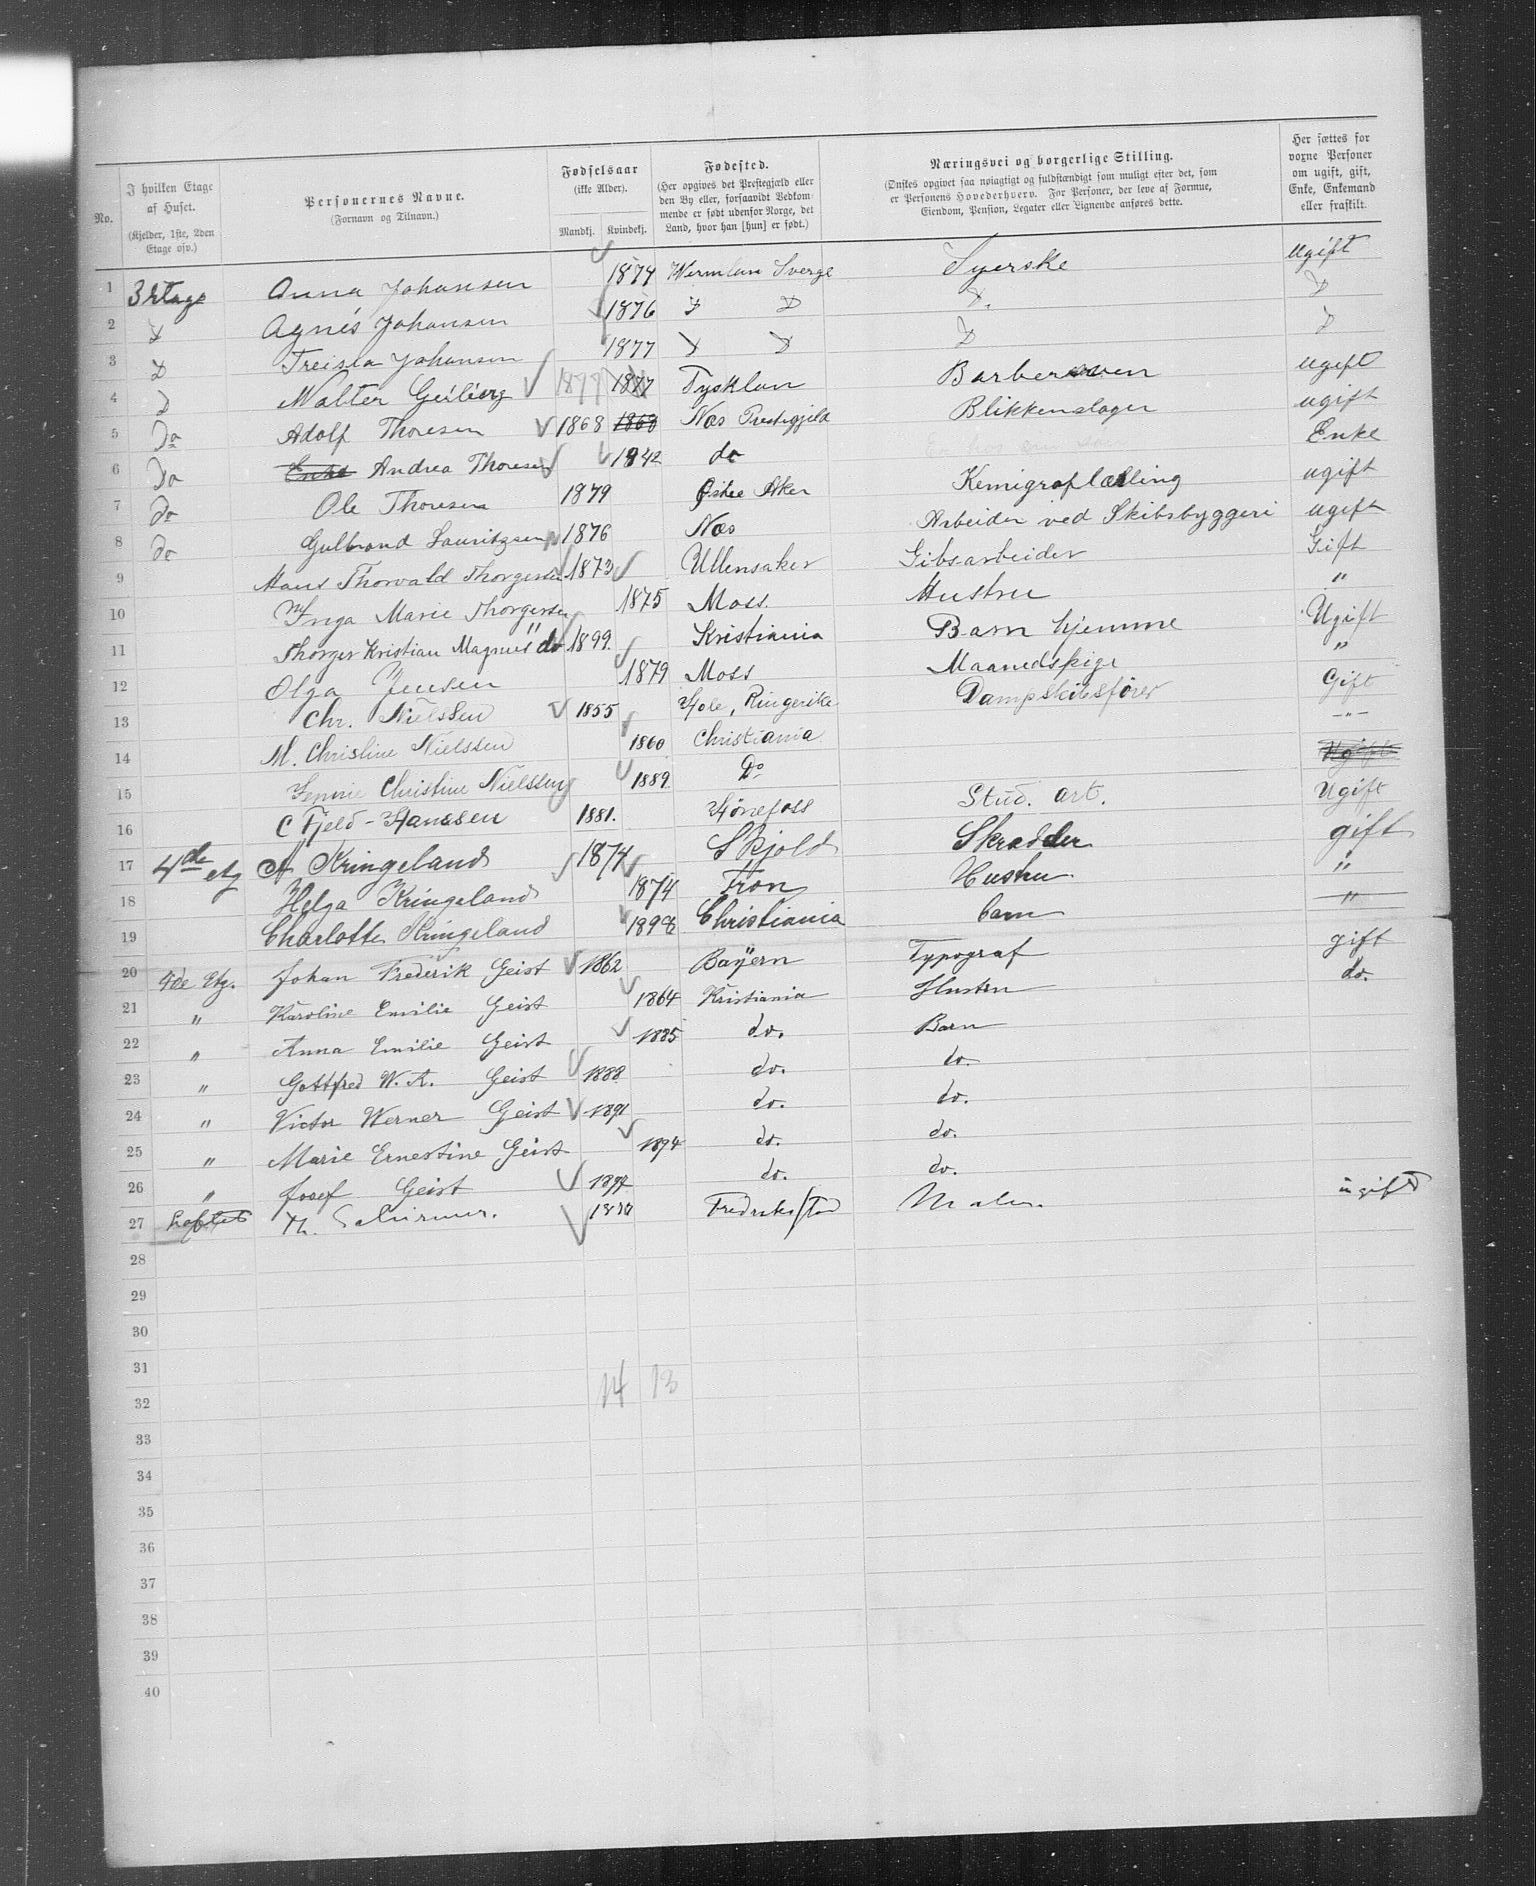 No.
I hvilken Etage af Huset. (Kjelder, 1ste, 2den Etage osv.)
Personernes Navne. (Fornavn og Tilnavn.)
Fødselsaar (ikke Alder). Mandkj. Kvindekj.
Fødested. (Her opgives det Prestegjæld eller den By eller, forsaavidt Vedkommende er født udenfor Norge, det Land, hvor han [hun] er født.)
Næringsvei og borgerlige Stilling. (Ønskes opgivet saa nøiagtigt og fuldstændigt som muligt efter det, som er Personens Hovederhverv. For Personer, der leve af Formue, Eiendom, Pension, Legater eller Lignende anføres dette.
Her sættes for voxne Personer om ugift, gift, Enke, Enkemand eller fraskilt.
1 3 Etage Anna Johansen 1874 Wermlan Sverge Syerske ugift
2 D Agnés Johansen 1876 D D D. D
3 D Treisia Johansen 1877 D D D D
4 D Walter Geiberg 1877 1877 Tysklan Barbersven ugift
5 Do Adolf Thoresen 1868 1868 Næs Prestegjeld Blikkenslager ugift
6 Do Enke Andrea Thoresen 1842 do Enke
7 Do Ole Thoresen 1879 Østre Aker Kemigraflærling ugift
8 Do Gulbrand Lauritzsen 1876 Næs Arbeider ved Skibsbyggeri ugift
9 Hans Thorvald Thorgersen 1873 Ullensaker Gibsarbeider Gift
10 Inga Marie Thorgersen 1875 Moss. Hustru "
11 Thorger Kristian Magnus do 1899. Kristiania Barn hjemme Ugift
12 Olga Jensen 1879 Moss Maanedspige "
13 Chr. Nielssen 1855 Hole, Ringerike Dampskibsfører Gift
14 M. Christine Nielssen 1860 Christiania -"-
15 Jennie Christine Nielssen 1889 Do Ugift
16 C Fjeld-Hanssen 1881. Hønefoss Stud. art. Ugift
17 4de etg A Kringeland 1874 Skjold Skrædder gift
18 Helga Kringeland 1874 Fron Hustru "
19 Charlotte Kringeland 1898 Christiania barn "
20 4de Etg. Johan Frederik Geist 1862 Bayern Typograf gift
21 " Karoline Emilie Geist 1864 Kristiania Hustru do.
22 " Anna Emilie Geist 1885 do. Barn
23 " Gottfred W. A. Geist 1888 do. do.
24 " Victor Werner Geist 1891 do. do.
25 " Marie Ernestine Geist 1894 do. do.
26 " Josef Geist 1897 do. do.
27 Loftet H. Schirmer. Fredrikstad Maler. ugift
28
29
30
31
32 14 13
33
34
35
36
37
38
39
40